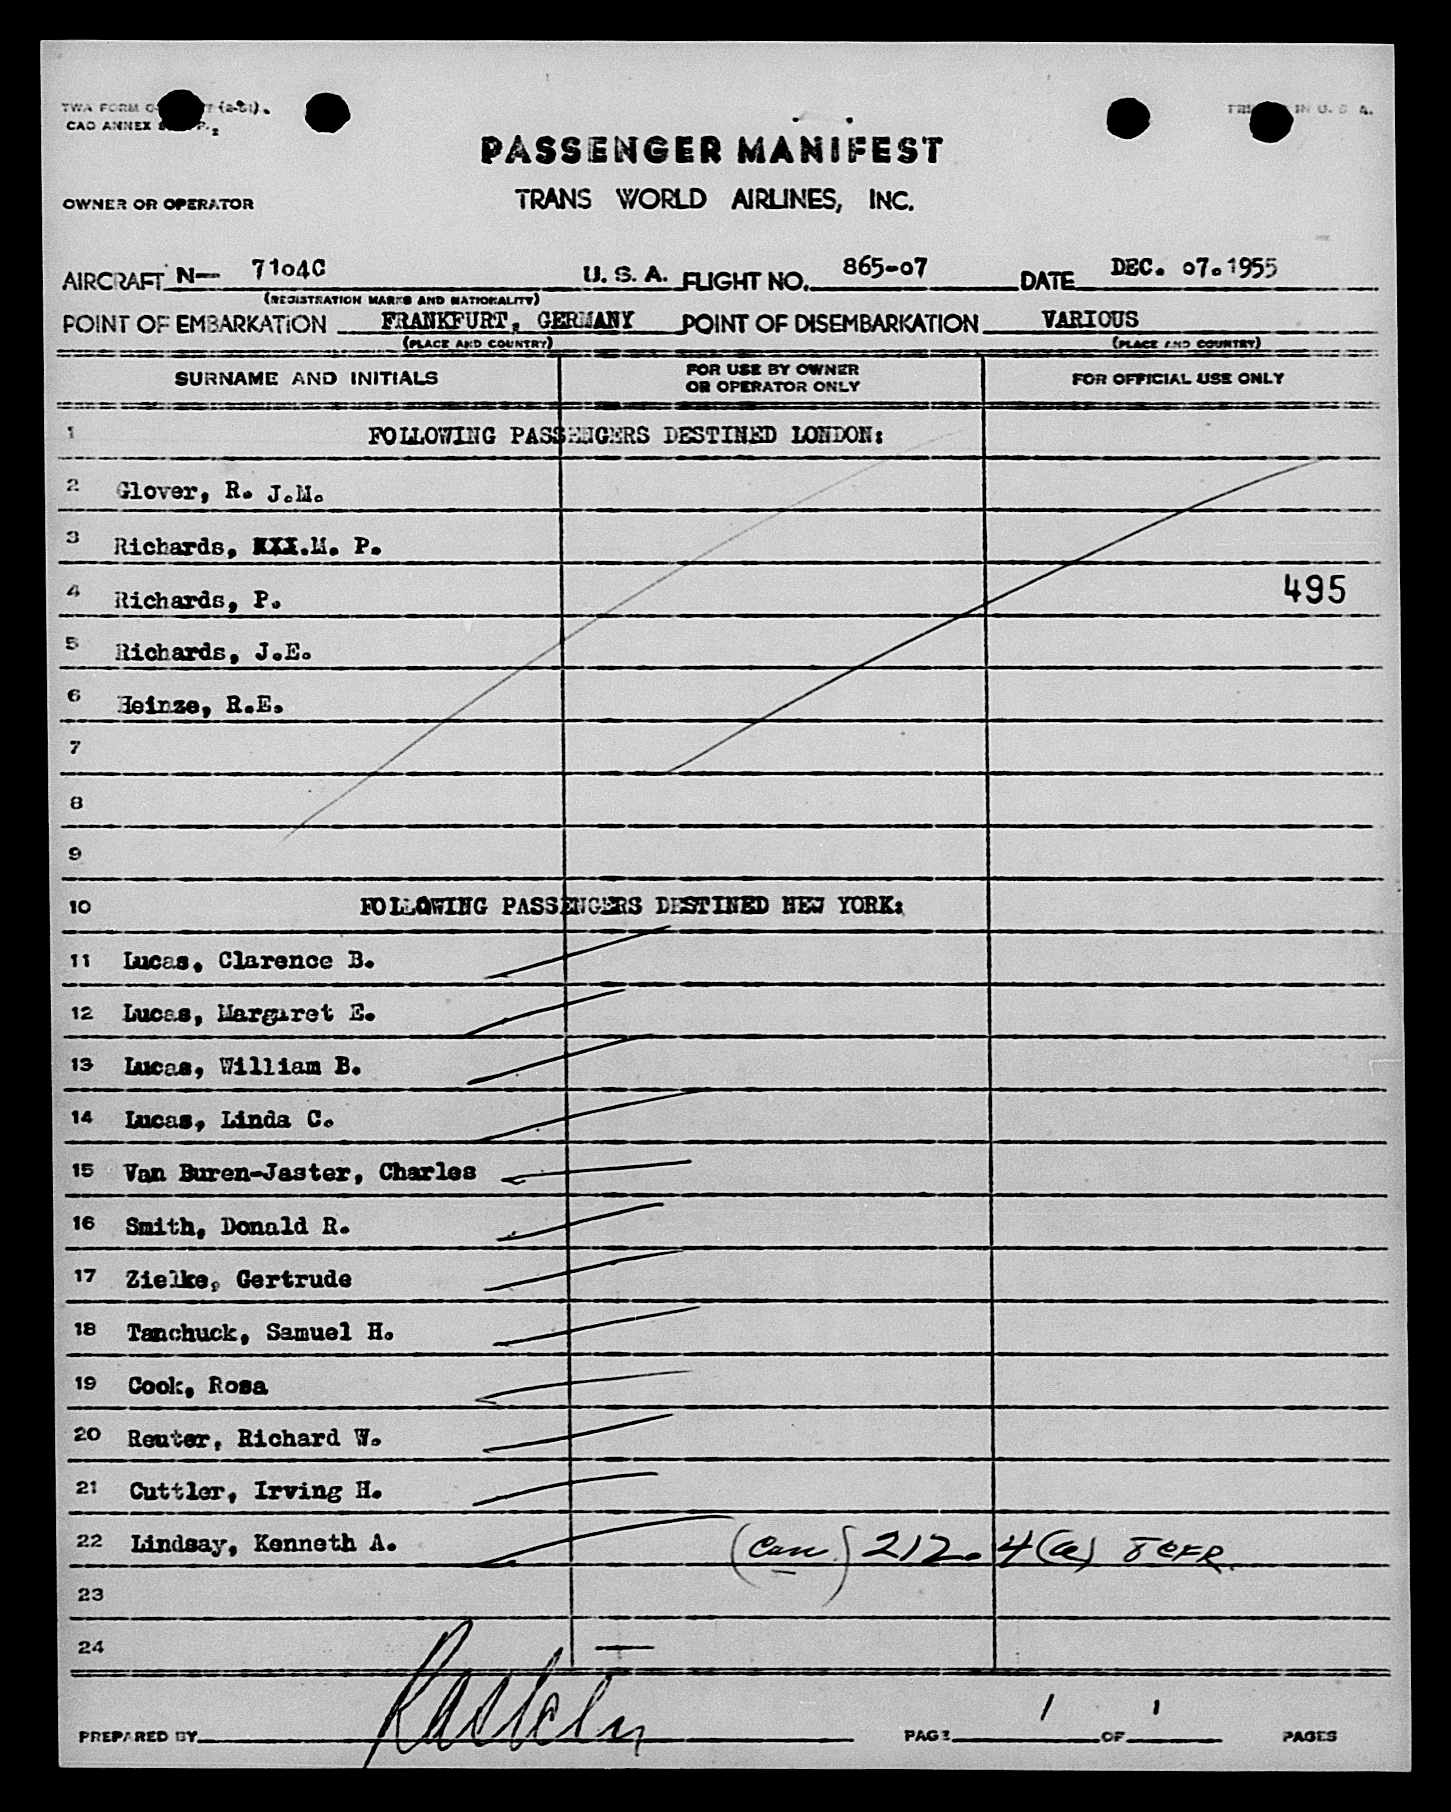 TWA FORM (2-51).
CAO ANNEX P.2
PRINTED IN U. S. A.
PASSENGER MANIFEST
OWNER OR OPERATOR TRANS WORLD AIRLINES, INC.
AIRCRAFT N— 7104C U. S. A. FLIGHT NO. 865-07 DATE DEC. 07.1955
(REGISTRATION MARKS AND NATIONALITY)
POINT OF EMBARKATION FRANKFURT, GERMANY POINT OF DISEMBARKATION VARIOUS
(PLACE AND COUNTRY) (PLACE AND COUNTRY)
SURNAME AND INITIALS FOR USE BY OWNER OR OPERATOR ONLY FOR OFFICIAL USE ONLY
1 FOLLOWING PASSENGERS DESTINED LONDON:
2 Glover, R. J.M.
3 Richards, XXX.M. P.
4 Richards, P. 495
5 Richards, J.E.
6 Heinze, R.E.
7
8
9
10 FOLLOWING PASSENGERS DESTINED NEW YORK:
11 Lucas, Clarence B.
12 Lucas, Margaret E.
13 Lucas, William B.
14 Lucas, Linda C.
15 Van Buren-Jaster, Charles
16 Smith, Donald R.
17 Zielke, Gertrude
18 Tanchuck, Samuel H.
19 Cook, Rosa
20 Reuter, Richard W.
21 Cuttler, Irving H.
22 Lindsay, Kenneth A. (Can.) 212.4(a) 8 CFR.
23
24
PREPARED BY PAGE 1 OF 1 PAGES